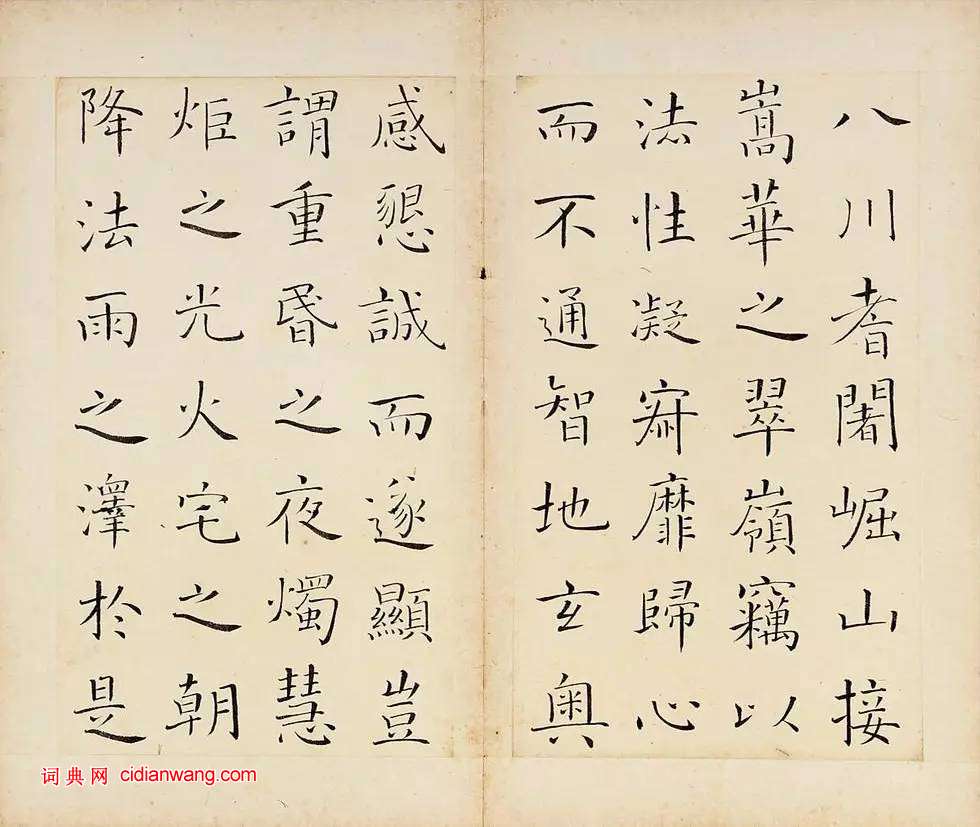 八川耆闍崛山接
嵩華之翠嶺竊以
法性凝寂靡歸心
而不通智地玄奥
感懇誠而遂顯豈
謂重昏之夜燭慧
炬之光火宅之朝
降法雨之澤於是
词典网 cidianwang.com